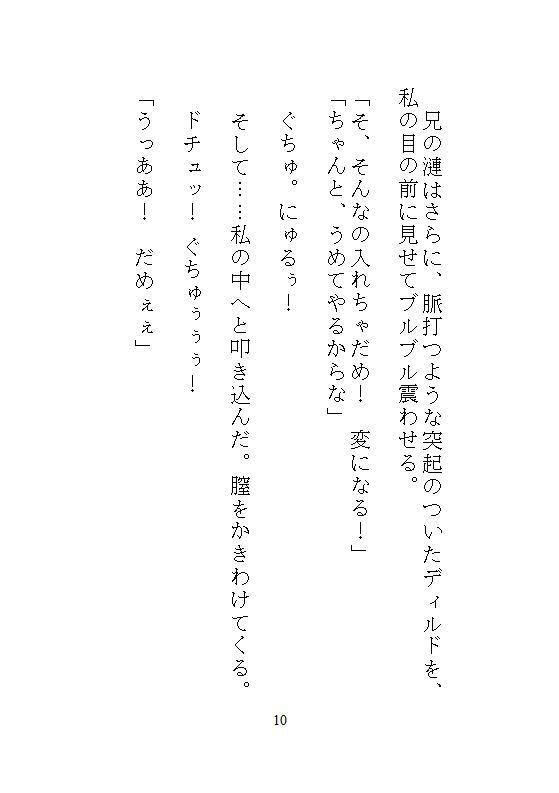 兄の漣はさらに、脈打つような突起のついたディルドを、
私の目の前に見せてブルブル震わせる。
「そ、そんなの入れちゃだめ！　変になる！」
「ちゃんと、うめてやるからな」
ぐちゅ。にゅるぅ！
そして……私の中へと叩き込んだ。膣をかきわけてくる。
ドチュッ！ ぐちゅぅぅぅ！
「うっああ！　だめぇぇ」
10